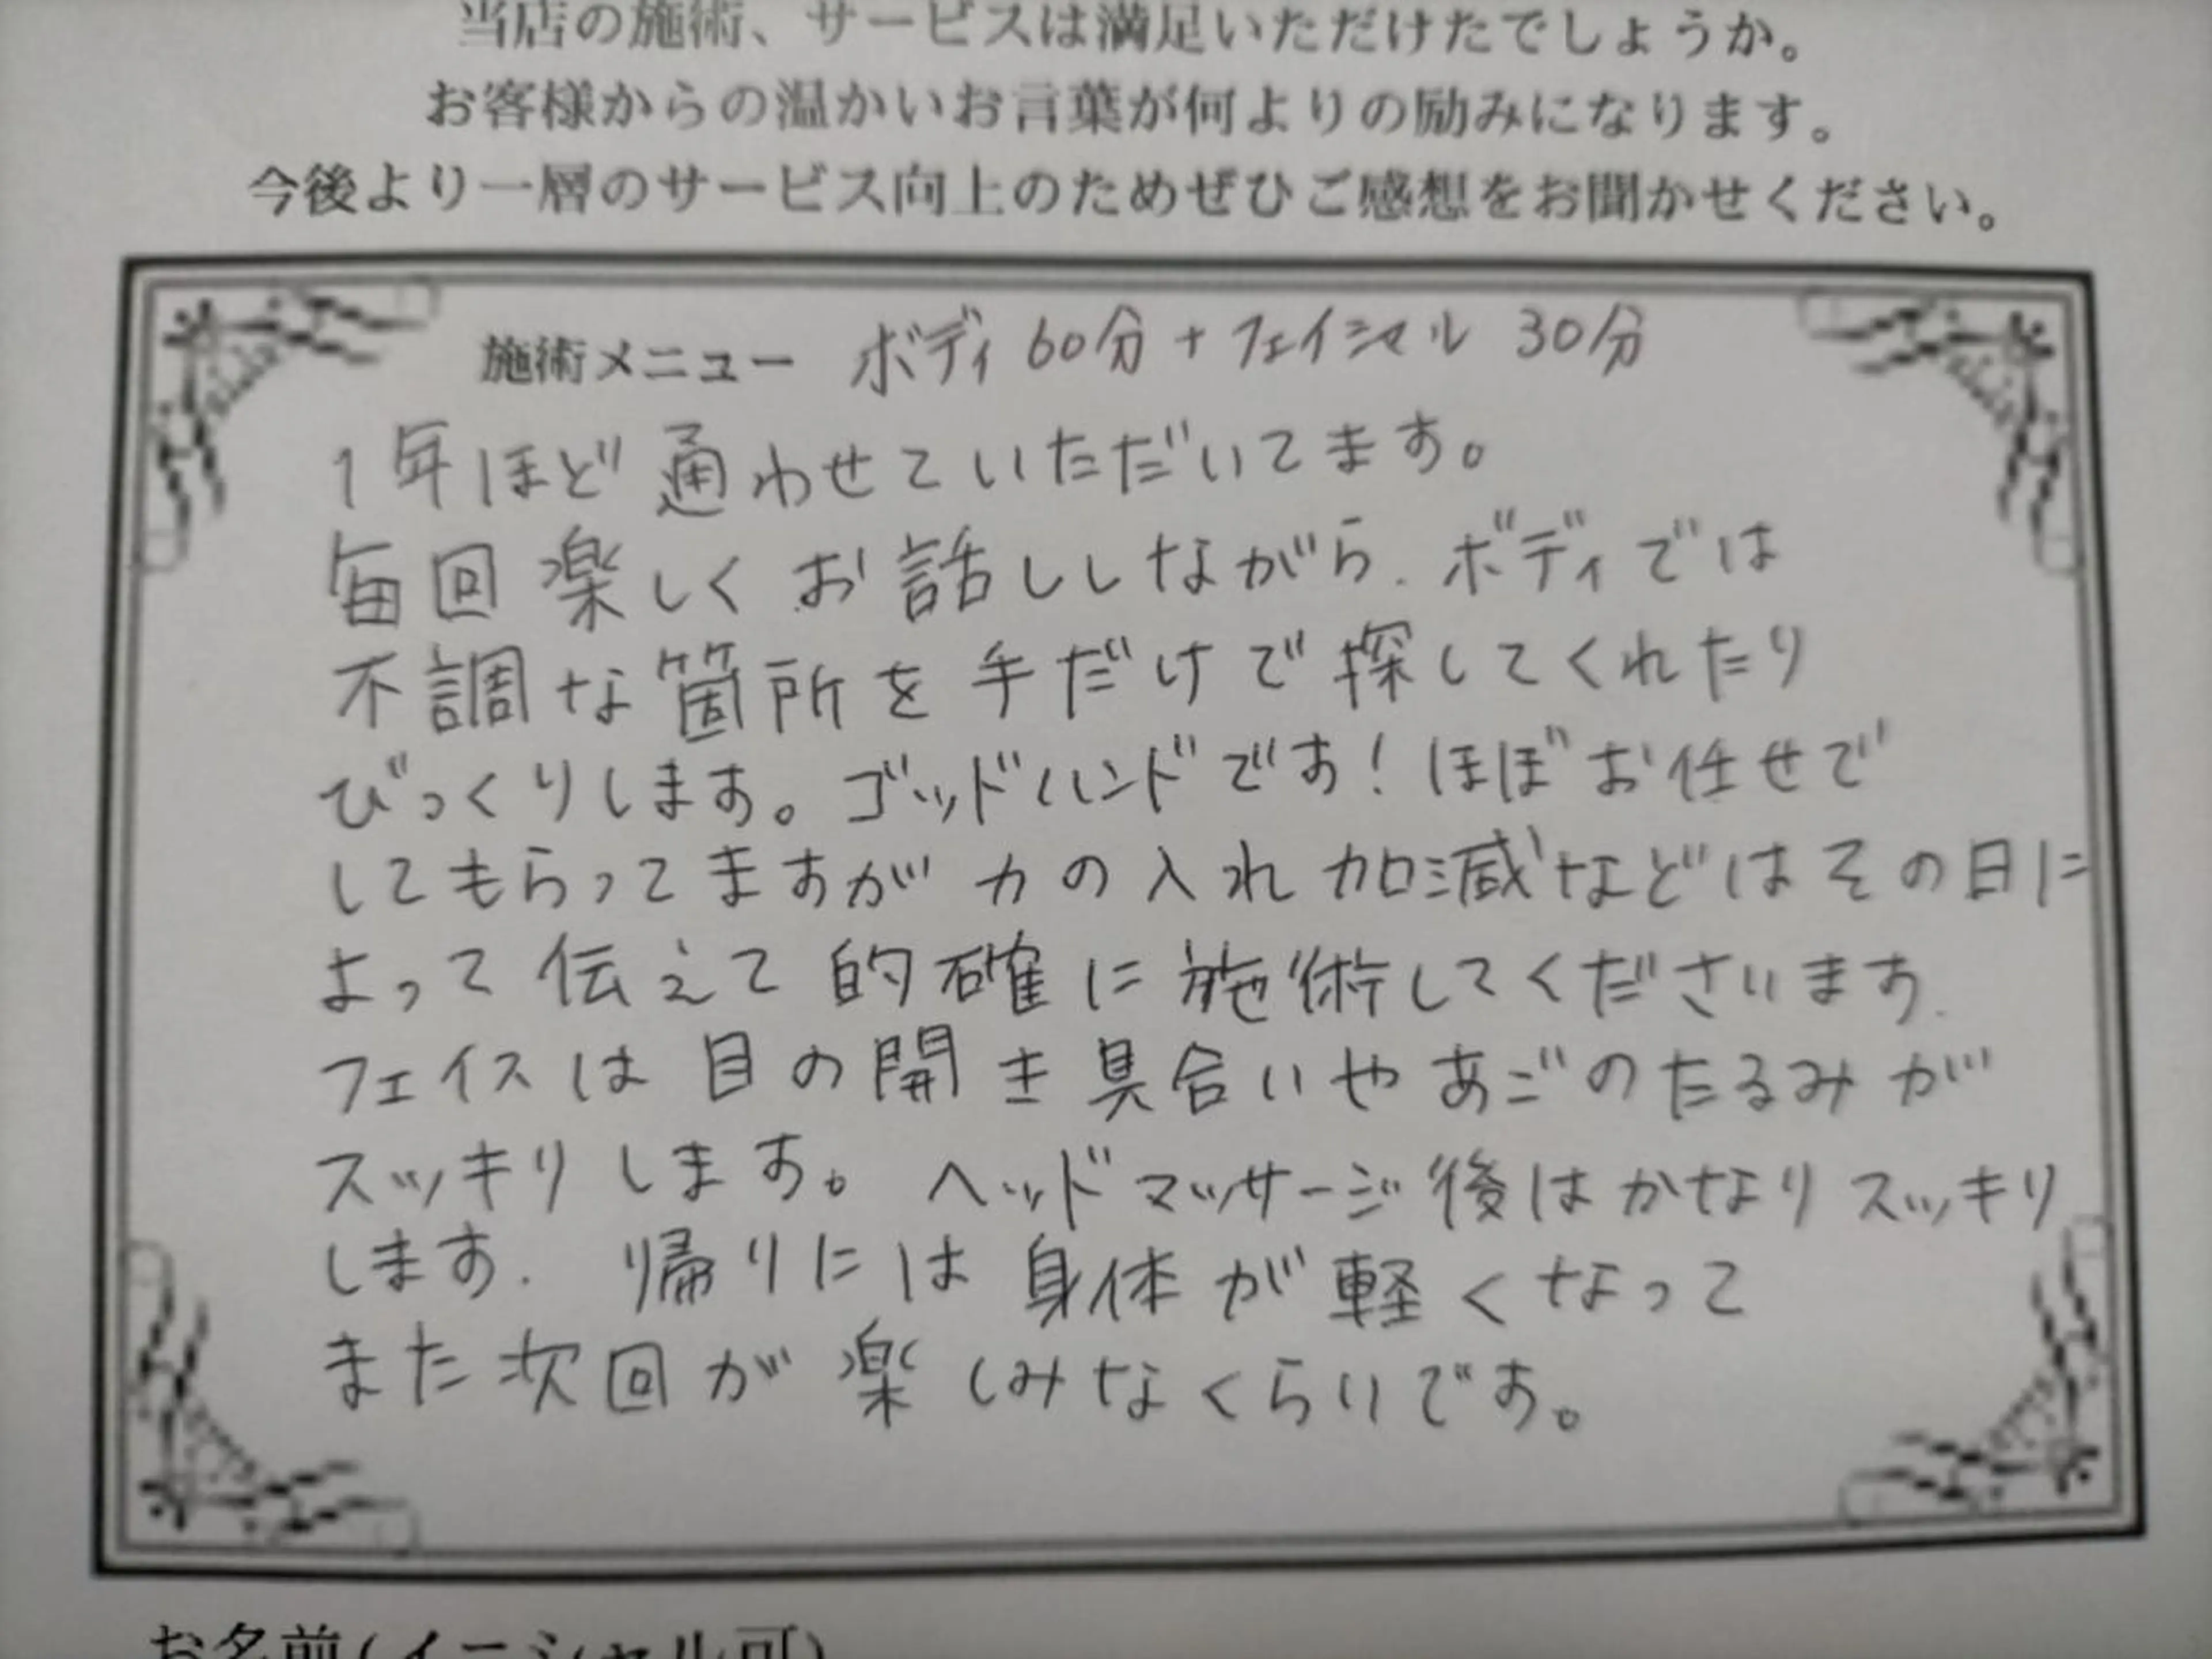 当店の施術、サービスは満足いただけたでしょうか。
お客様からの温かいお言葉が何よりの励みになります。
今後より一層のサービス向上のためぜひご感想をお聞かせください。
施術メニュー ボディ 60分 + フェイシャル 30分
1年ほど通わせていただいてます。
毎回楽しくお話ししながら、ボディでは
不調な箇所を手だけで探してくれたり
びっくりします。ゴッドハンドです！ほぼお任せで
してもらってますが力の入れ加減などはその日に
よって伝えて的確に施術してくださいます.
フェイスは目の開き具合いやあごのたるみが
スッキリします。ヘッドマッサージ後はかなりスッキリ
します. 帰りには身体が軽くなって
また次回が楽しみなくらいです。
お名前(イニシャル可)